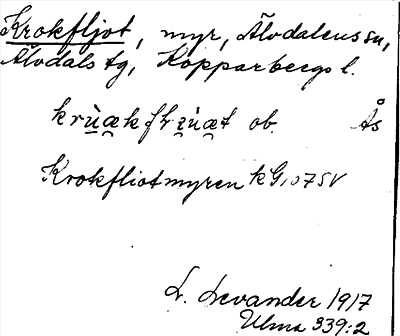 Krokfljot, myr, Älvdalens sn,
Älvdals tg, Kopparbergs l.
ob. Ås
Krokfliotmyren kG, 107SV
L. Levander 1917
Ulma 339:2